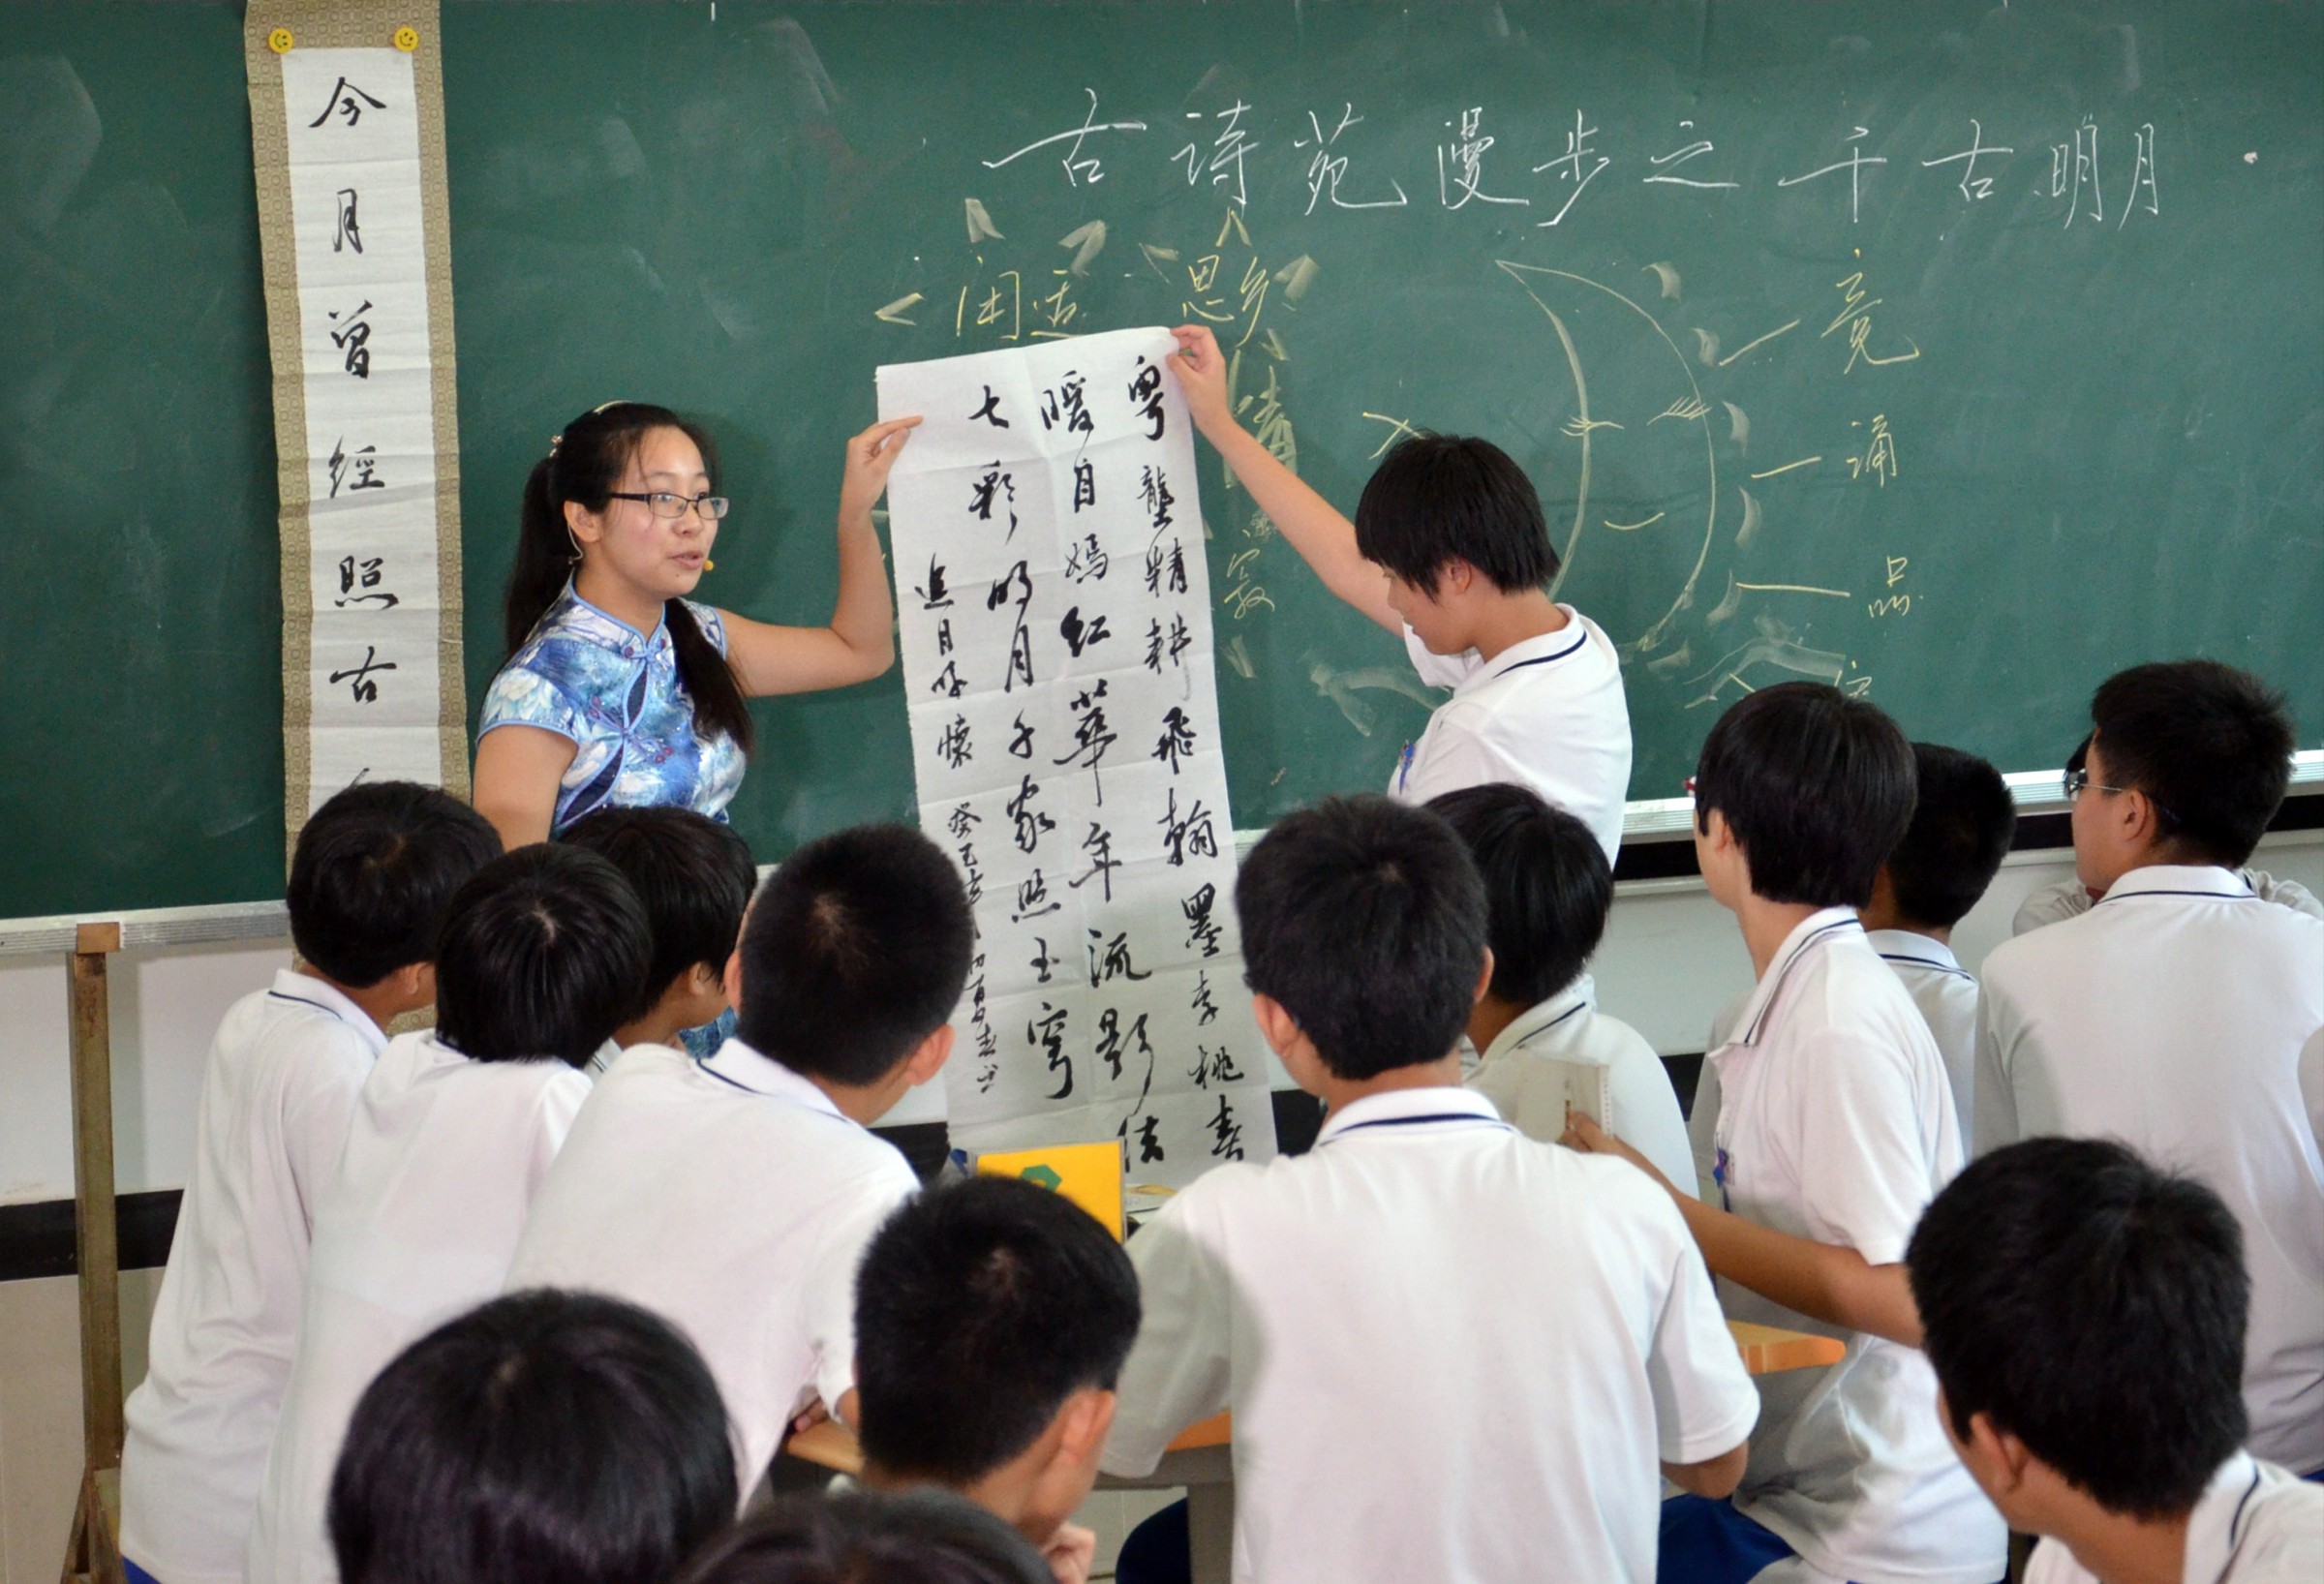 今月曾經照古
古诗苑漫步之千古明月
闲适
思乡
情
寂
竞
诵
品
粤龔精耕飛翰墨李桃春
暖自嫣红華年流影法
七彩明月千家照玉穹
追月咏懷
癸巳